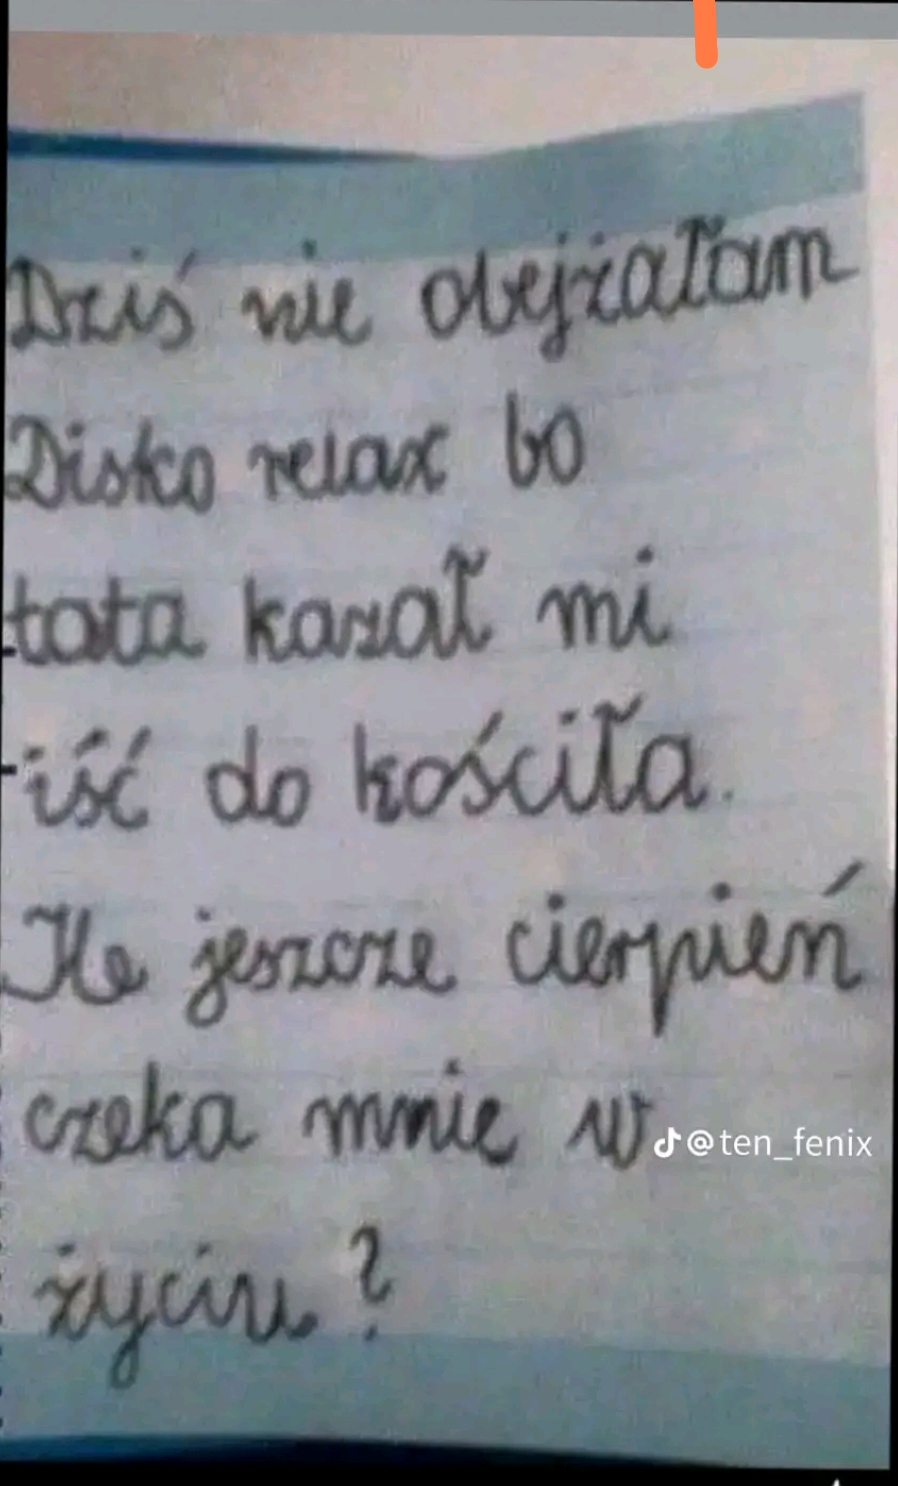 Dziś nie obejżałam
Disko relax bo
tata kazał mi
iść do kościła.
Ile jeszcze cierpień
czeka mnie w
@ten_fenix
życiu?